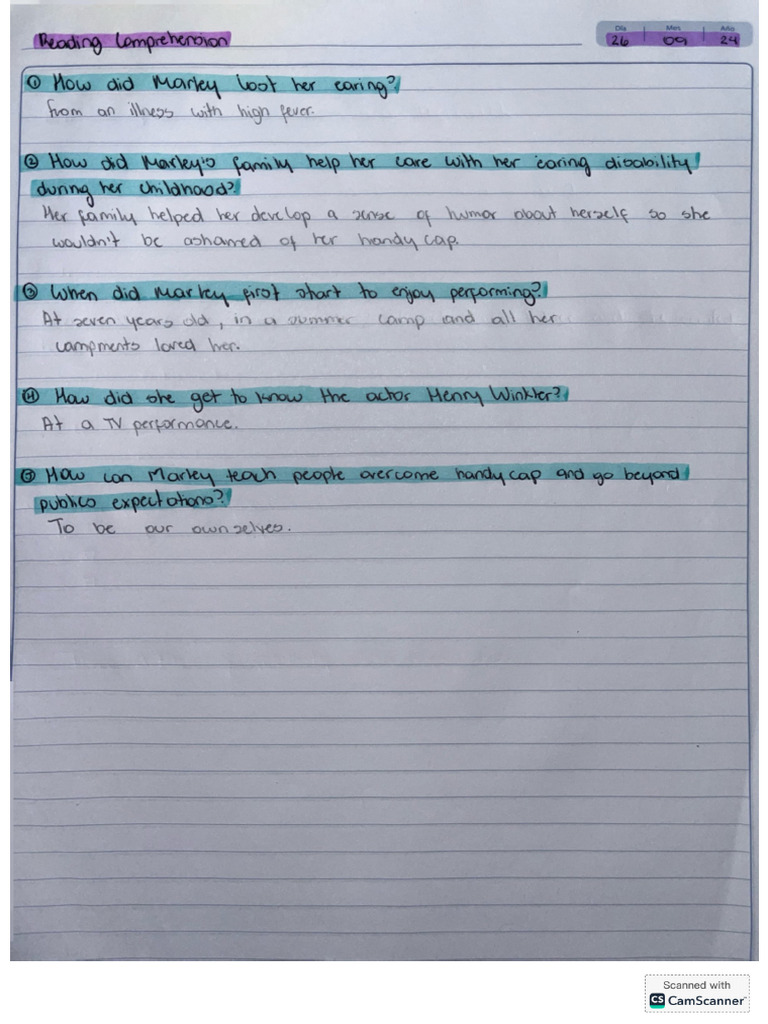 Reading Comprehension
Día Mes Año
26 09 24
① How did Marley lost her earing?
from an illness with high fever.
② How did Marley's family help her care with her earing disability
during her childhood?
Her family helped her develop a sense of humor about herself so she
wouldn't be ashamed of her handy cap.
③ When did Marley first start to enjoy performing?
At seven years old, in a summer camp and all her
campments loved her.
④ How did she get to know the actor Henry Winkler?
At a TV performance.
⑤ How can Marley teach people overcome handy cap and go beyond
publics expectations?
To be our ownselves.
Scanned with
CS CamScanner